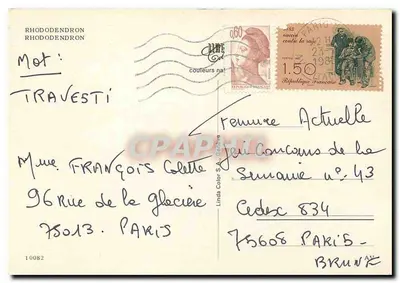 RHODODENDRON
RHODODENDRON
Mot:
TRAVESTI
Mme FRANÇOIS Colette
96 Rue de la Glacière
75013. PARIS
10082
LIRE
couleurs na
Linda Color S.A.
0,60
1.50
République Française
CPARAMA
Femme Actuelle
Jeu Concours de la
Semaine n° 43
Cedex 834
75608 PARIS-
BRUNE